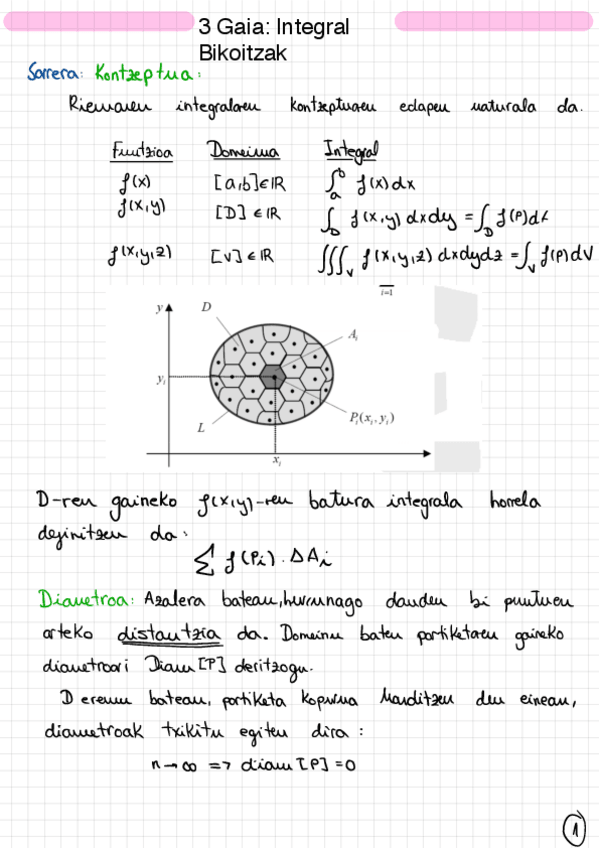 3 Gaia: Integral
Bikoitzak
Sorrera: Kontzeptua:
Riemanen integralaren kontzeptuaren edapen naturala da.
Funtzioa Domeinua Integral
f(x) [a,b]∈ℝ ∫_a^b f(x)dx
f(x,y) [D]∈ℝ ∫_D f(x,y)dxdy = ∫_D f(P)dA
f(x,y,z) [V]∈ℝ ∭_V f(x,y,z)dxdydz = ∫_V f(P)dV
i=1
y D A_i
y_i
P_i(x_i, y_i)
L
x_i
D-ren gaineko f(x,y)-ren batura integrala horrela
definitzen da:
∑ f(Pi)·ΔAi
Diametroa: Azalera batean, hurrunago dauden bi puntuen
arteko distantzia da. Domeinu baten partiketaren gaineko
diametroari Diam[P] deritzogu.
D eremu batean, partiketa kopurua handitzen den einean,
diametroak txikitu egiten dira:
n→∞ => diam[P]=0
1